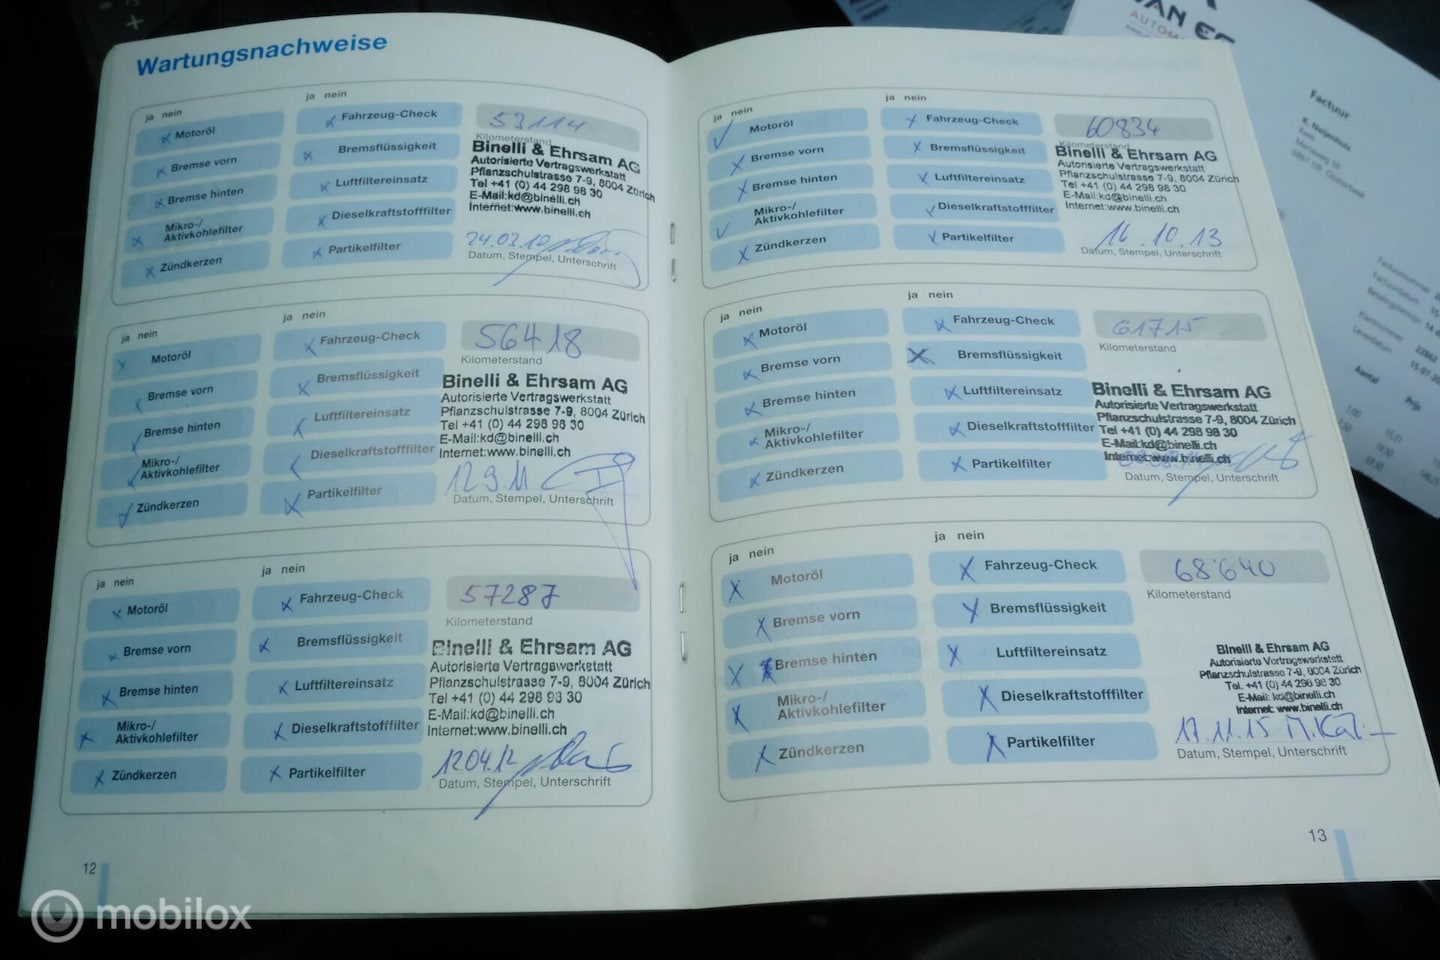 Wartungsnachweise
ja nein
ja nein
Motoröl
Fahrzeug-Check
53114
Kilometerstand
Bremse vorn
Bremsflüssigkeit
Bremse hinten
Luftfiltereinsatz
Mikro-/
Aktivkohlefilter
Dieselkraftstofffilter
Zündkerzen
Partikelfilter
Binelli & Ehrsam AG
Autorisierte Vertragswerkstatt
Pflanzschulstrasse 7-9, 8004 Zürich
Tel +41 (0) 44 298 98 30
E-Mail:kd@binelli.ch
Internet:www.binelli.ch
Datum, Stempel, Unterschrift
ja nein
ja nein
Motoröl
Fahrzeug-Check
56418
Kilometerstand
Bremse vorn
Bremsflüssigkeit
Bremse hinten
Luftfiltereinsatz
Mikro-/
Aktivkohlefilter
Dieselkraftstofffilter
Zündkerzen
Partikelfilter
Binelli & Ehrsam AG
Autorisierte Vertragswerkstatt
Pflanzschulstrasse 7-9, 8004 Zürich
Tel +41 (0) 44 298 98 30
E-Mail:kd@binelli.ch
Internet:www.binelli.ch
12.9.11
Datum, Stempel, Unterschrift
ja nein
ja nein
Motoröl
Fahrzeug-Check
57287
Kilometerstand
Bremse vorn
Bremsflüssigkeit
Bremse hinten
Luftfiltereinsatz
Mikro-/
Aktivkohlefilter
Dieselkraftstofffilter
Zündkerzen
Partikelfilter
Binelli & Ehrsam AG
Autorisierte Vertragswerkstatt
Pflanzschulstrasse 7-9, 8004 Zürich
Tel +41 (0) 44 298 98 30
E-Mail:kd@binelli.ch
Internet:www.binelli.ch
12.04.12
Datum, Stempel, Unterschrift
12
ja nein
ja nein
Motoröl
Fahrzeug-Check
60834
Kilometerstand
Bremse vorn
Bremsflüssigkeit
Bremse hinten
Luftfiltereinsatz
Mikro-/
Aktivkohlefilter
Dieselkraftstofffilter
Zündkerzen
Partikelfilter
Binelli & Ehrsam AG
Autorisierte Vertragswerkstatt
Pflanzschulstrasse 7-9, 8004 Zürich
Tel +41 (0) 44 298 98 30
E-Mail:kd@binelli.ch
Internet:www.binelli.ch
16.10.13
Datum, Stempel, Unterschrift
ja nein
ja nein
Motoröl
Fahrzeug-Check
61715
Kilometerstand
Bremse vorn
Bremsflüssigkeit
Bremse hinten
Luftfiltereinsatz
Mikro-/
Aktivkohlefilter
Dieselkraftstofffilter
Zündkerzen
Partikelfilter
Binelli & Ehrsam AG
Autorisierte Vertragswerkstatt
Pflanzschulstrasse 7-9, 8004 Zürich
Tel +41 (0) 44 298 98 30
E-Mail:kd@binelli.ch
Internet:www.binelli.ch
Datum, Stempel, Unterschrift
ja nein
ja nein
Motoröl
Fahrzeug-Check
68'640
Kilometerstand
Bremse vorn
Bremsflüssigkeit
Bremse hinten
Luftfiltereinsatz
Mikro-/
Aktivkohlefilter
Dieselkraftstofffilter
Zündkerzen
Partikelfilter
Binelli & Ehrsam AG
Autorisierte Vertragswerkstatt
Pflanzschulstrasse 7-9, 8004 Zürich
Tel. +41 (0) 44 298 98 30
E-Mail: kd@binelli.ch
Internet: www.binelli.ch
17.11.15
Datum, Stempel, Unterschrift
13
Factuur
Aantal
Prijs
mobilox